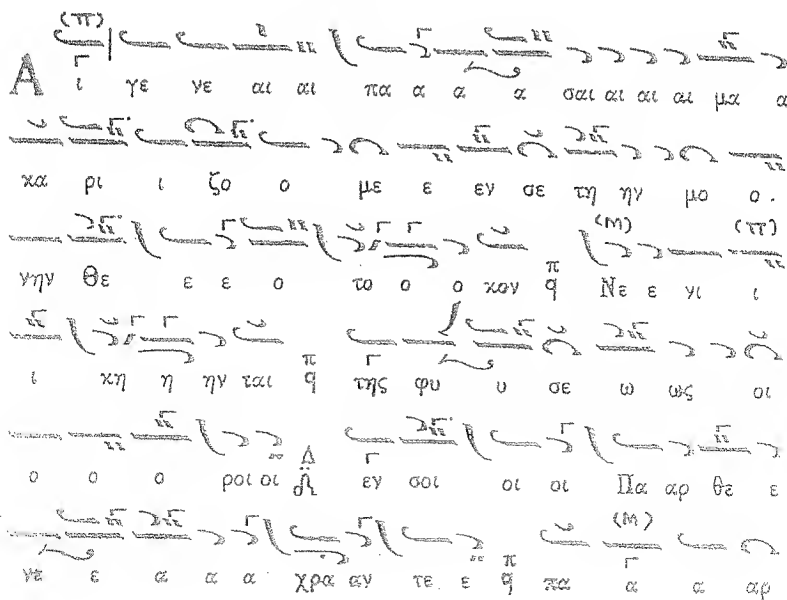 (π)
Α ι γε νε αι αι πα α α α σαι αι αι αι μα α
κα ρι ι ζο ο με ε εν σε τη ην μο ο.
(Μ) (π)
νην Θε ε ε ο το ο ο κον π q Νε ε νι ι
ι κη η ην ται π q της φυ υ σε ω ως οι
ο ο ο ροι οι Δ εν σοι οι οι Πα αρ θε ε
(Μ)
νε ε α α α χρα αν τε ε π q πα α α αρ